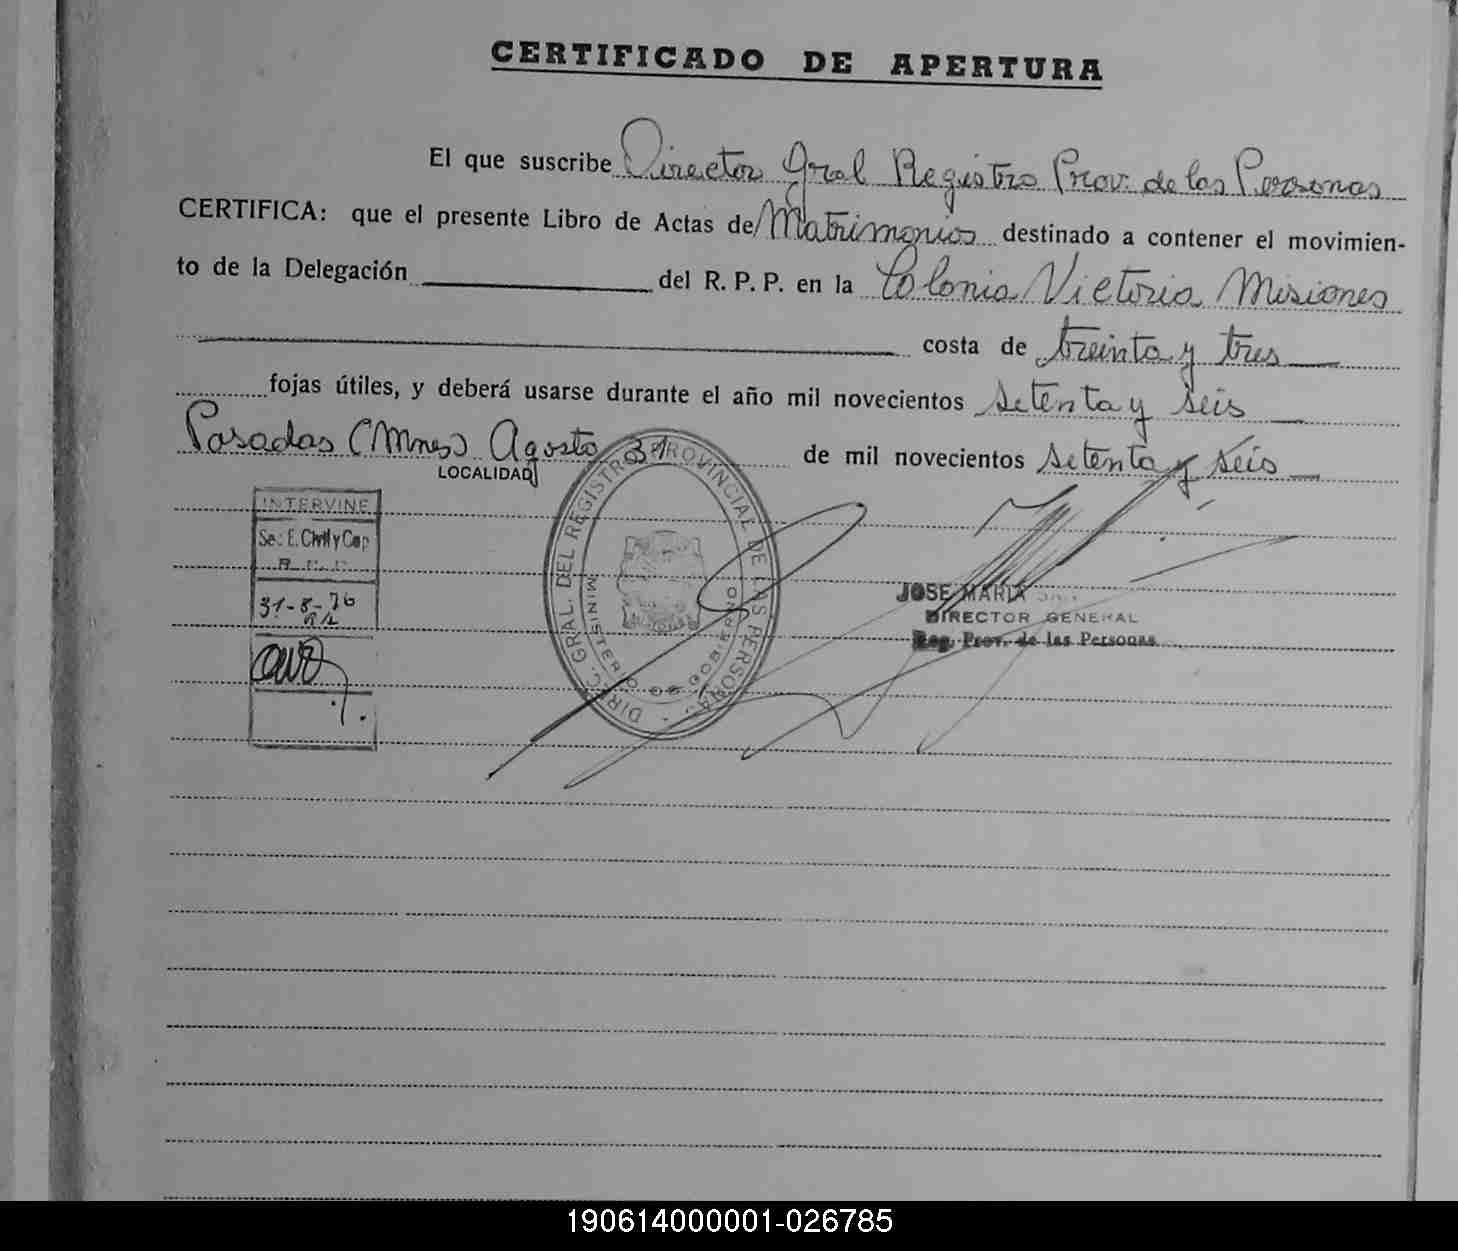 CERTIFICADO DE APERTURA
El que suscribe Director Gral Registro Prov. de las Personas
CERTIFICA: que el presente Libro de Actas de Matrimonios destinado a contener el movimien-
to de la Delegación del R. P. P. en la Colonia Victoria Misiones
costa de treinta y tres
fojas útiles, y deberá usarse durante el año mil novecientos setenta y seis
Posadas (Mnes) Agosto 31 de mil novecientos setenta y seis
LOCALIDAD
INTERVINE
Sec. E. Civil y Cap
31-8-76
DIREC. GRAL. DEL REGISTRO PROVINCIAL DE LAS PERSONAS
MINISTERIO DE GOBIERNO
JOSE MARIA
DIRECTOR GENERAL
Reg. Prov. de las Personas
190614000001-026785